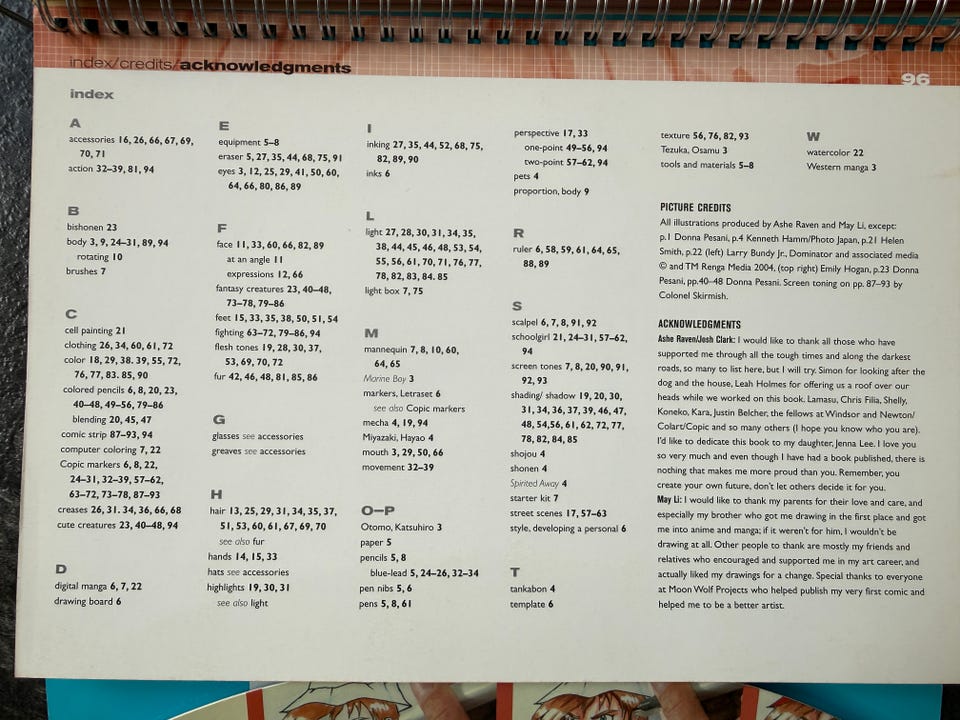 index/credits/acknowledgments
96
index
A
accessories 16, 26, 66, 67, 69,
70, 71
action 32–39, 81, 94
B
bishonen 23
body 3, 9, 24–31, 89, 94
rotating 10
brushes 7
C
cell painting 21
clothing 26, 34, 60, 61, 72
color 18, 29, 38. 39, 55, 72,
76, 77, 83. 85, 90
colored pencils 6, 8, 20, 23,
40–48, 49–56, 79–86
blending 20, 45, 47
comic strip 87–93, 94
computer coloring 7, 22
Copic markers 6, 8, 22,
24–31, 32–39, 57–62,
63–72, 73–78, 87–93
creases 26, 31. 34, 36, 66, 68
cute creatures 23, 40–48, 94
D
digital manga 6, 7, 22
drawing board 6
E
equipment 5–8
eraser 5, 27, 35, 44, 68, 75, 91
eyes 3, 12, 25, 29, 41, 50, 60,
64, 66, 80, 86, 89
F
face 11, 33, 60, 66, 82, 89
at an angle 11
expressions 12, 66
fantasy creatures 23, 40–48,
73–78, 79–86
feet 15, 33, 35, 38, 50, 51, 54
fighting 63–72, 79–86, 94
flesh tones 19, 28, 30, 37,
53, 69, 70, 72
fur 42, 46, 48, 81, 85, 86
G
glasses see accessories
greaves see accessories
H
hair 13, 25, 29, 31, 34, 35, 37,
51, 53, 60, 61, 67, 69, 70
see also fur
hands 14, 15, 33
hats see accessories
highlights 19, 30, 31
see also light
I
inking 27, 35, 44, 52, 68, 75,
82, 89, 90
inks 6
L
light 27, 28, 30, 31, 34, 35,
38, 44, 45, 46, 48, 53, 54,
55, 56, 61, 70, 71, 76, 77,
78, 82, 83, 84. 85
light box 7, 75
M
mannequin 7, 8, 10, 60,
64, 65
Marine Boy 3
markers, Letraset 6
see also Copic markers
mecha 4, 19, 94
Miyazaki, Hayao 4
mouth 3, 29, 50, 66
movement 32–39
O–P
Otomo, Katsuhiro 3
paper 5
pencils 5, 8
blue-lead 5, 24–26, 32–34
pen nibs 5, 6
pens 5, 8, 61
perspective 17, 33
one-point 49–56, 94
two-point 57–62, 94
pets 4
proportion, body 9
R
ruler 6, 58, 59, 61, 64, 65,
88, 89
S
scalpel 6, 7, 8, 91, 92
schoolgirl 21, 24–31, 57–62,
94
screen tones 7, 8, 20, 90, 91,
92, 93
shading/ shadow 19, 20, 30,
31, 34, 36, 37, 39, 46, 47,
48, 54,56, 61, 62, 72, 77,
78, 82, 84, 85
shojou 4
shonen 4
Spirited Away 4
starter kit 7
street scenes 17, 57–63
style, developing a personal 6
T
tankabon 4
template 6
texture 56, 76, 82, 93
Tezuka, Osamu 3
tools and materials 5–8
W
watercolor 22
Western manga 3
PICTURE CREDITS
All illustrations produced by Ashe Raven and May Li, except:
p.1 Donna Pesani, p.4 Kenneth Hamm/Photo Japan, p.21 Helen
Smith, p.22 (left) Larry Bundy Jr., Dominator and associated media
© and TM Renga Media 2004, (top right) Emily Hogan, p.23 Donna
Pesani, pp.40–48 Donna Pesani. Screen toning on pp. 87–93 by
Colonel Skirmish.
ACKNOWLEDGMENTS
Ashe Raven/Josh Clark: I would like to thank all those who have
supported me through all the tough times and along the darkest
roads, so many to list here, but I will try. Simon for looking after the
dog and the house, Leah Holmes for offering us a roof over our
heads while we worked on this book. Lamasu, Chris Filia, Shelly,
Koneko, Kara, Justin Belcher, the fellows at Windsor and Newton/
Colart/Copic and so many others (I hope you know who you are).
I'd like to dedicate this book to my daughter, Jenna Lee. I love you
so very much and even though I have had a book published, there is
nothing that makes me more proud than you. Remember, you
create your own future, don't let others decide it for you.
May Li: I would like to thank my parents for their love and care, and
especially my brother who got me drawing in the first place and got
me into anime and manga; if it weren't for him, I wouldn't be
drawing at all. Other people to thank are mostly my friends and
relatives who encouraged and supported me in my art career, and
actually liked my drawings for a change. Special thanks to everyone
at Moon Wolf Projects who helped publish my very first comic and
helped me to be a better artist.